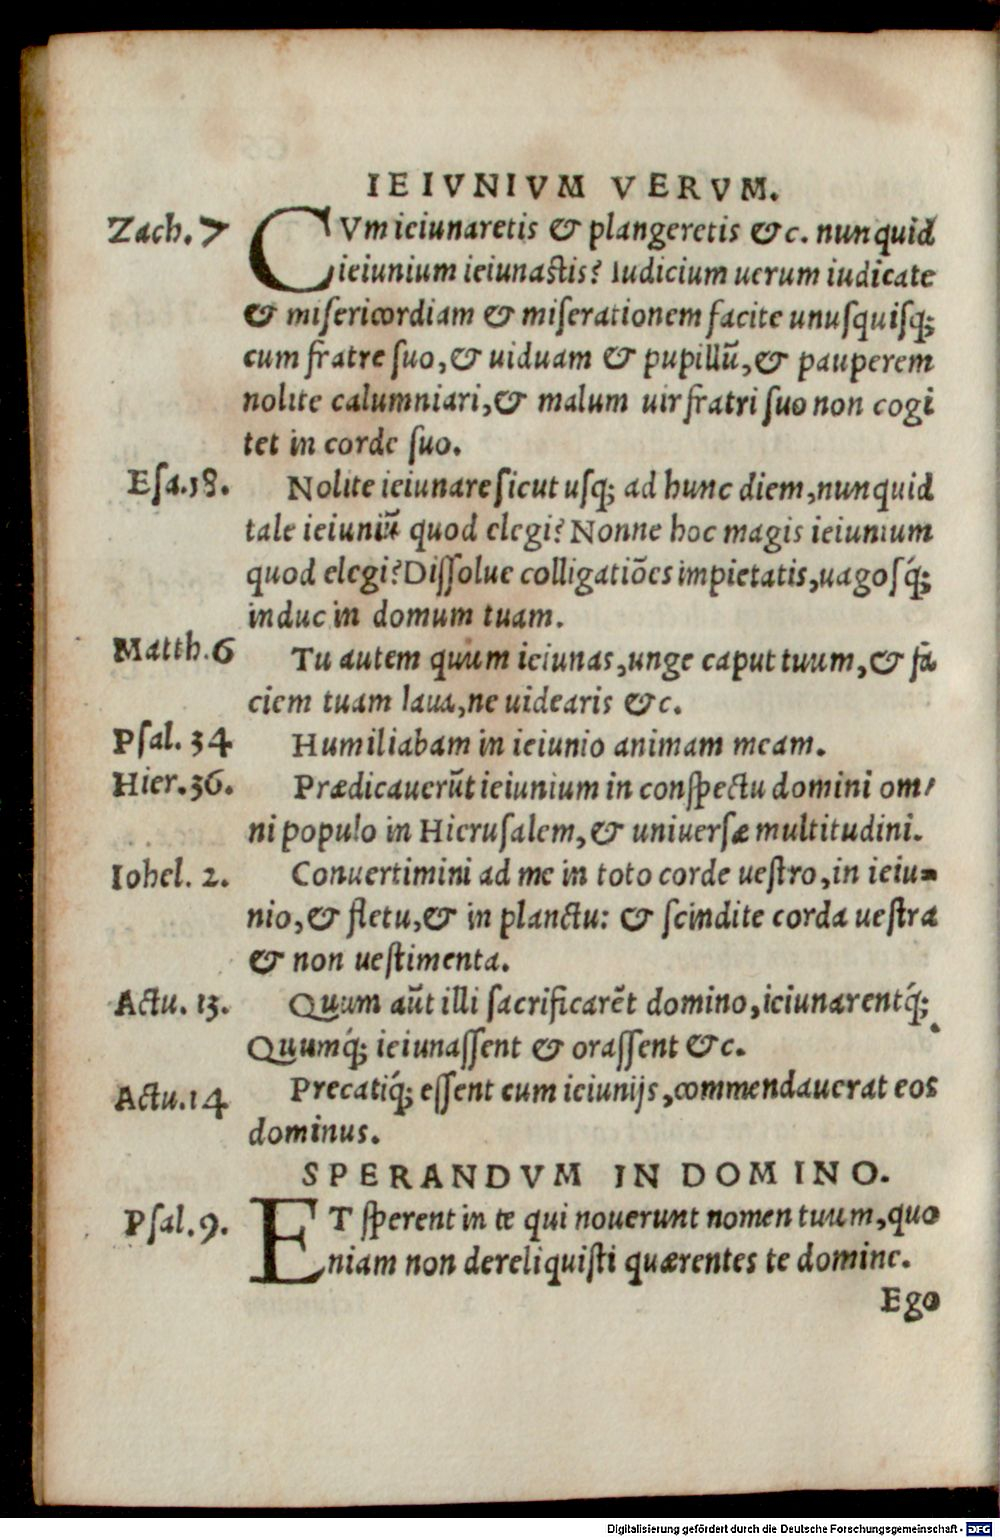 IEIVNIVM VERVM.
Zach. 7 CVm ieiunaretis & plangeretis &c. nunquid
ieiunium ieiunastis? Iudicium uerum iudicate
& misericordiam & miserationem facite unusquisq;
cum fratre suo, & uiduam & pupillū, & pauperem
nolite calumniari, & malum uir fratri suo non cogi
tet in corde suo.
Esa.18. Nolite ieiunare sicut usq; ad hunc diem, nunquid
tale ieiuniū quod elegi? Nonne hoc magis ieiunium
quod elegi? Dissolue colligatiōes impietatis, uagosq́;
induc in domum tuam.
Matth.6 Tu autem quum ieiunas, unge caput tuum, & fa
ciem tuam laua, ne uidearis &c.
Psal. 34 Humiliabam in ieiunio animam meam.
Hier.36. Prædicauerūt ieiunium in conspectu domini om/
ni populo in Hierusalem, & uniuersæ multitudini.
Iohel. 2. Conuertimini ad me in toto corde uestro, in ieiu=
nio, & fletu, & in planctu: & scindite corda uestra
& non uestimenta.
Actu. 13. Quum aūt illi sacrificarēt domino, ieiunarentq́;
Quumq́; ieiunassent & orassent &c.
Actu.14 Precatiq́; essent cum ieiunijs, commendauerat eos
dominus.
SPERANDVM IN DOMINO.
Psal.9. ET sperent in te qui nouerunt nomen tuum, quo
niam non dereliquisti quærentes te domine.
Ego
Digitalisierung gefördert durch die Deutsche Forschungsgemeinschaft - DFG